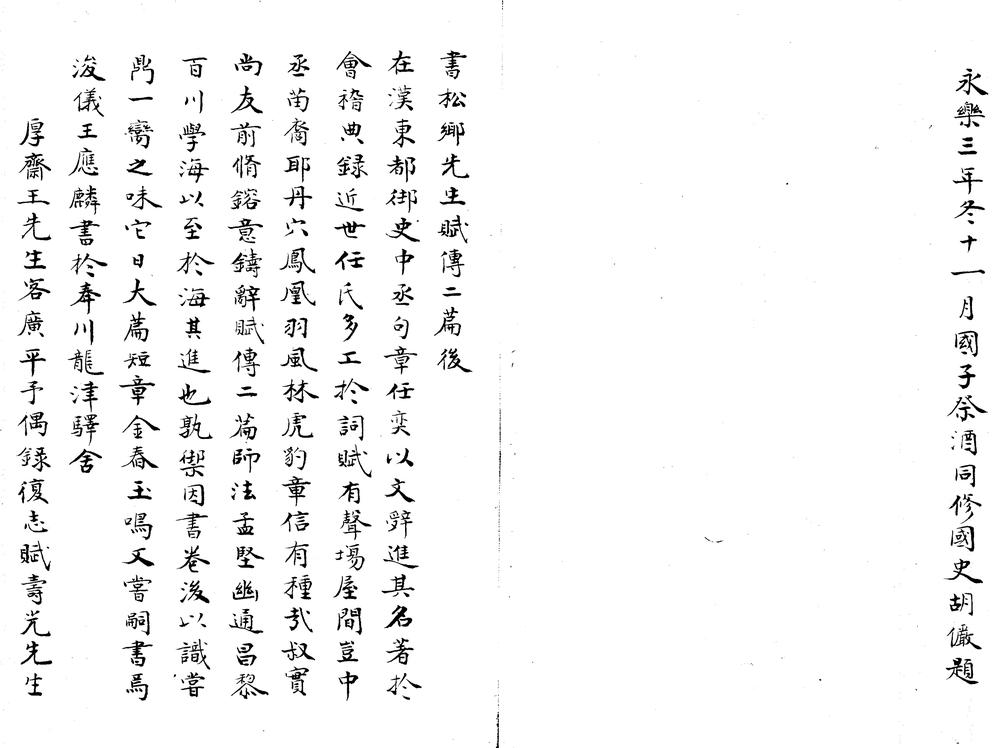 永樂三年冬十一月國子祭酒同修國史胡儼題
書松鄉先生賦傳二篇後
在漢東都御史中丞句章任奕以文辭進其名著於
會稽典録近世任氏多工於詞賦有聲塲屋間豈中
丞苗裔耶丹穴鳳凰羽風林虎豹章信有種哉叔實
尚友前脩鎔意鑄辭賦傳二篇師法孟堅幽通昌黎
百川學海以至於海其進也孰禦因書卷後以識嘗
鼎一臠之味它日大篇短章金舂玉鳴又嘗嗣書焉
浚儀王應麟書於奉川龍津驛舍
厚齋王先生客廣平予偶録復志賦壽光先生